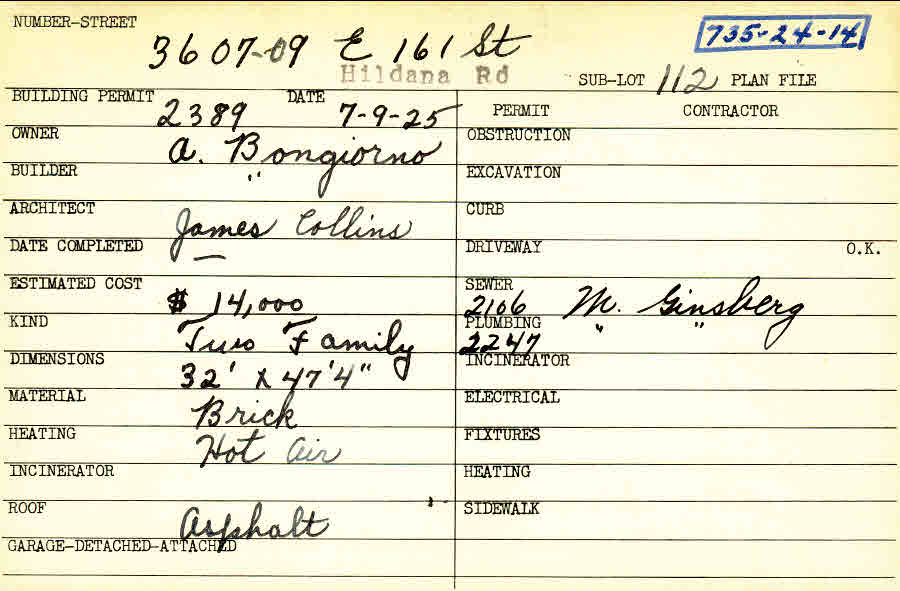 NUMBER-STREET 3607-09 E 161 St 735-24-14
Hildana Rd SUB-LOT 112 PLAN FILE
BUILDING PERMIT 2389 DATE 7-9-25 PERMIT CONTRACTOR
OWNER A. Bongiorno OBSTRUCTION
BUILDER " EXCAVATION
ARCHITECT James Collins CURB
DATE COMPLETED — DRIVEWAY O.K.
ESTIMATED COST $ 14,000 SEWER 2106 M. Ginsberg
KIND Two Family PLUMBING 2247 " "
DIMENSIONS 32' x 47'4" INCINERATOR
MATERIAL Brick ELECTRICAL
HEATING Hot Air FIXTURES
INCINERATOR HEATING
ROOF Asphalt SIDEWALK
GARAGE-DETACHED-ATTACHED